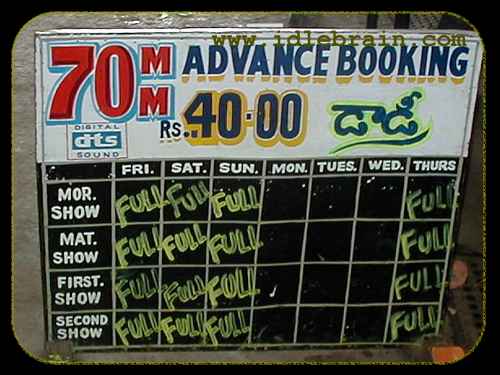 www.idlebrain.com
70MM ADVANCE BOOKING
DIGITAL dts SOUND Rs.40-00 డాడీ
FRI. SAT. SUN. MON. TUES. WED. THURS
MOR. SHOW FULL FULL FULL FULL
MAT. SHOW FULL FULL FULL FULL
FIRST. SHOW FULL FULL FULL FULL
SECOND SHOW FULL FULL FULL FULL